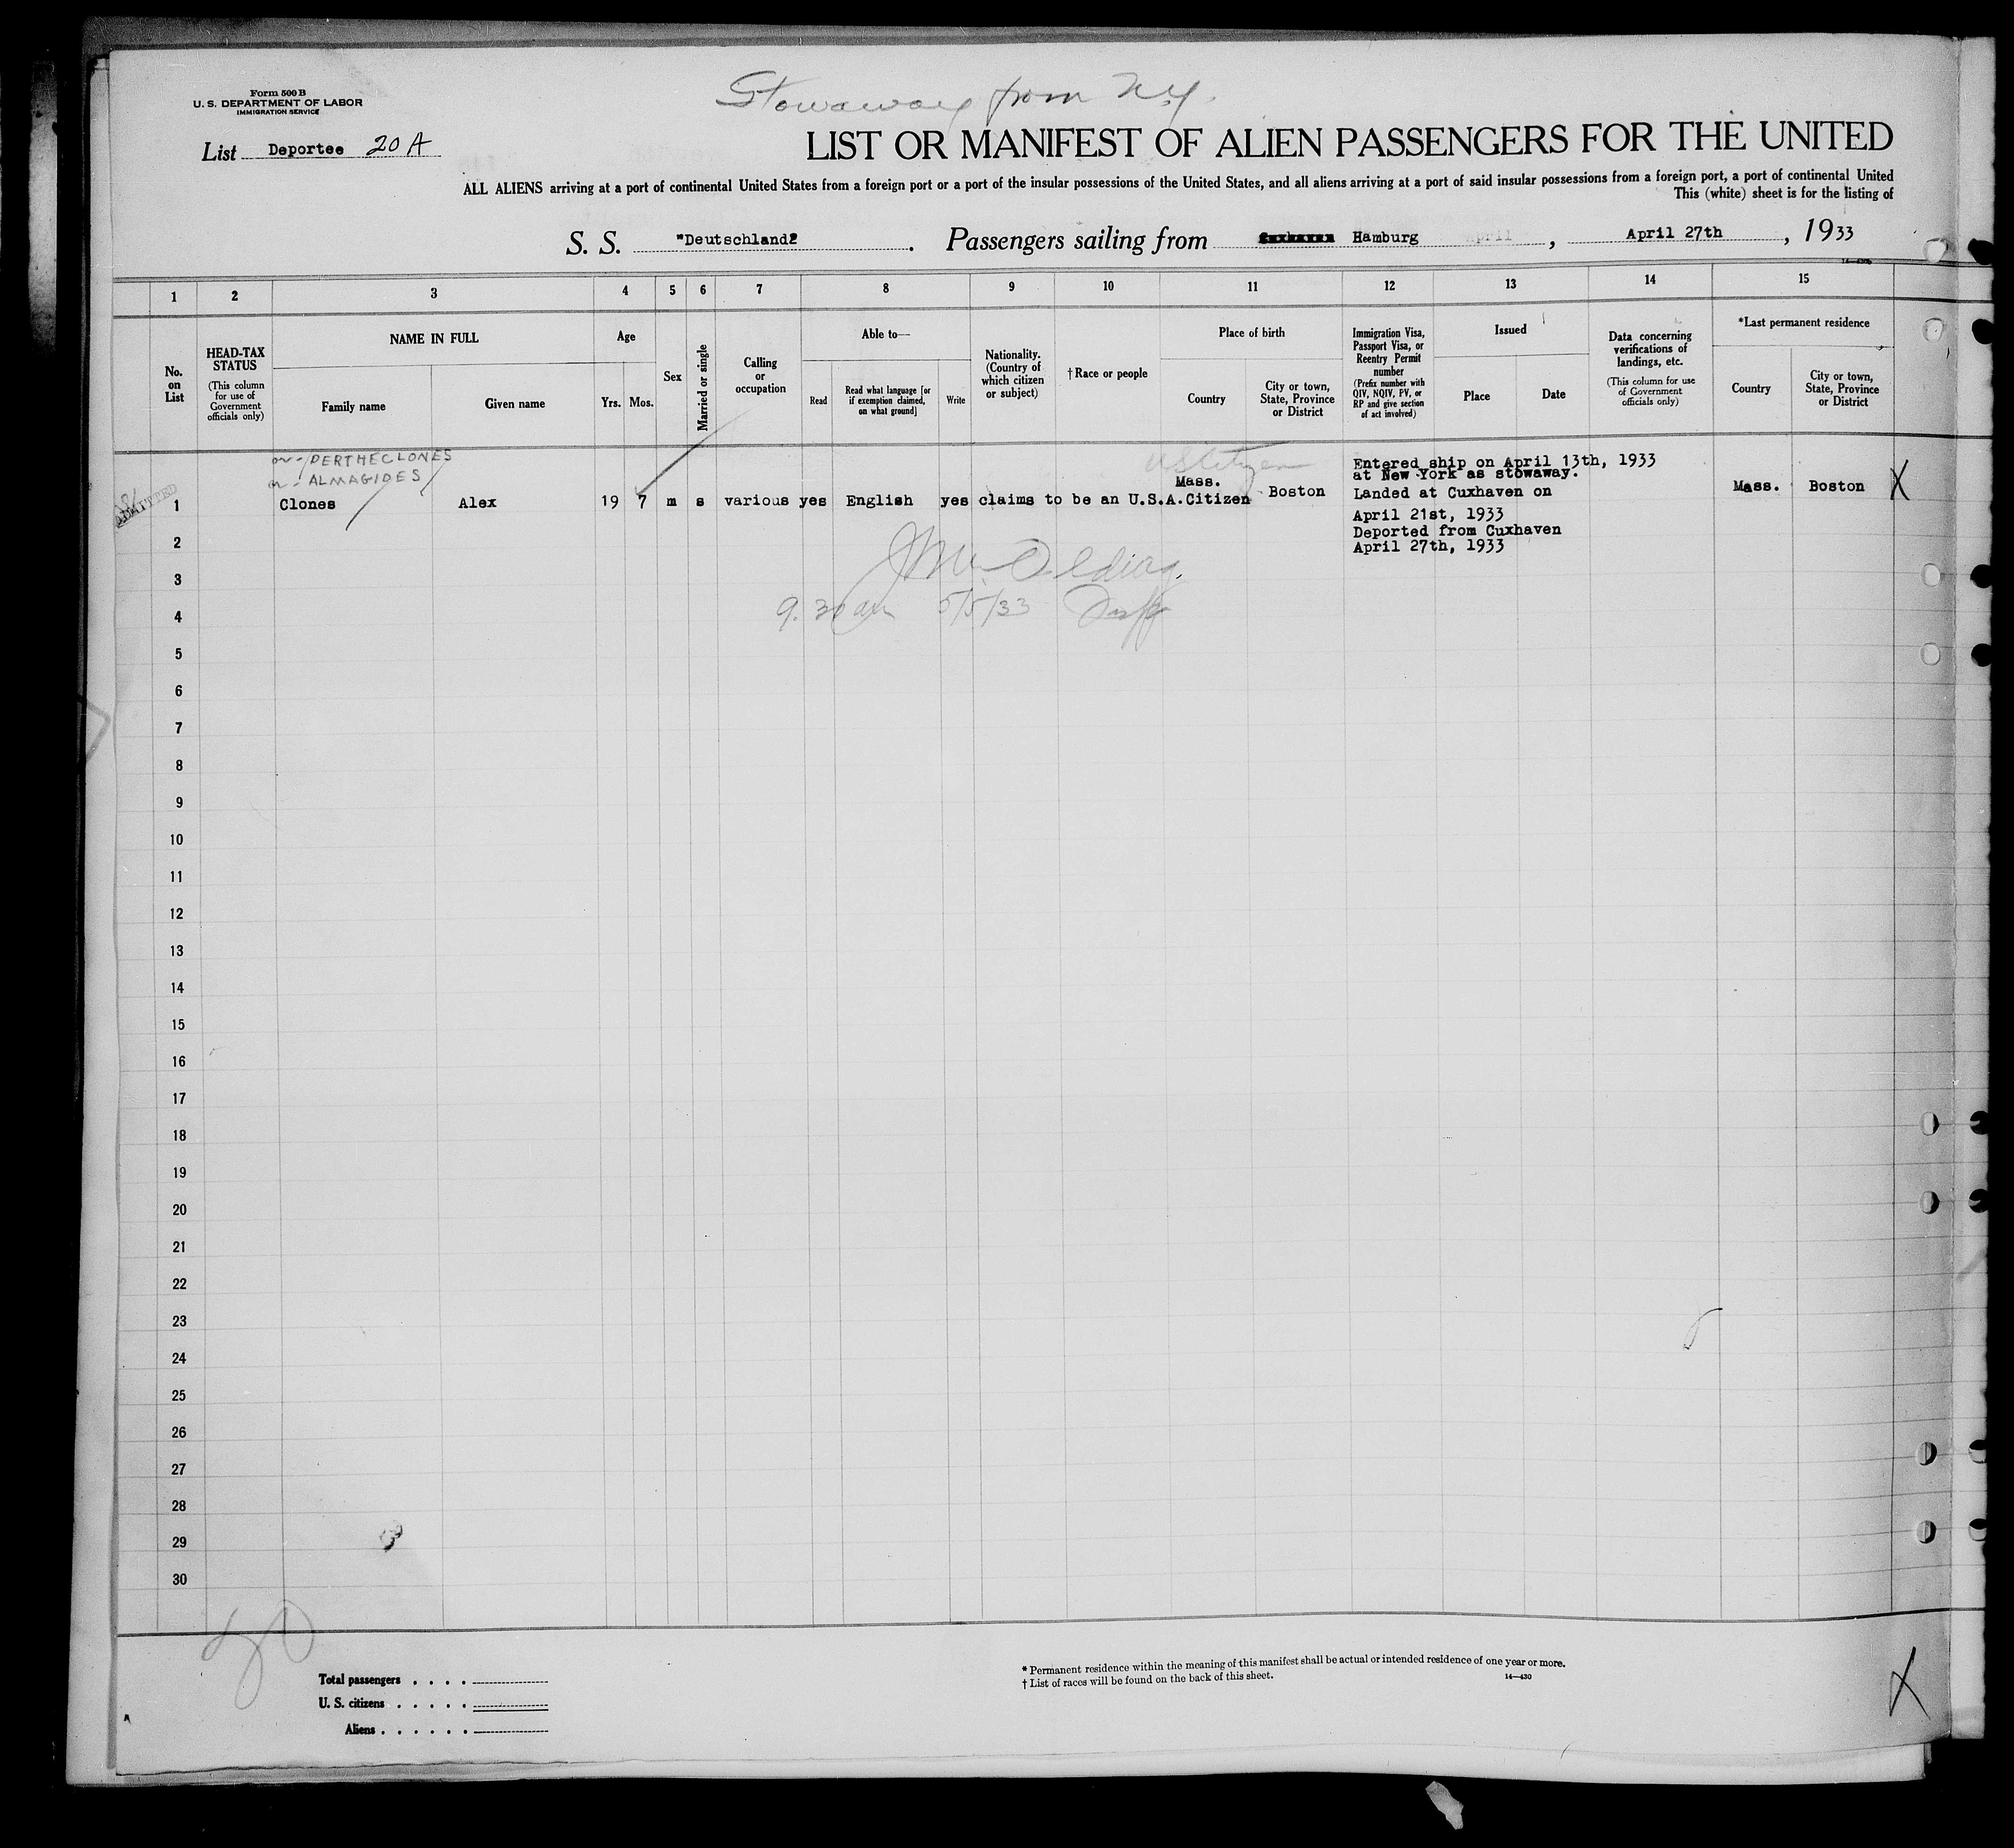 Stowaway from N.Y.
Form 500 B
U. S. DEPARTMENT OF LABOR
IMMIGRATION SERVICE
List Deportee 20 A
LIST OR MANIFEST OF ALIEN PASSENGERS FOR THE UNITED
ALL ALIENS arriving at a port of continental United States from a foreign port or a port of the insular possessions of the United States, and all aliens arriving at a port of said insular possessions from a foreign port, a port of continental United
This (white) sheet is for the listing of
S. S. "Deutschland2 . Passengers sailing from Hamburg April , April 27th , 1933
1 2 3 4 5 6 7 8 9 10 11 12 13 14 15
No. on List
HEAD-TAX STATUS
(This column for use of Government officials only)
NAME IN FULL
Family name
Given name
Age
Yrs. Mos.
Sex
Married or single
Calling or occupation
Able to—
Read
Read what language [or if exemption claimed, on what ground]
Write
Nationality. (Country of which citizen or subject)
†Race or people
Place of birth
Country
City or town, State, Province or District
Immigration Visa, Passport Visa, or Reentry Permit number
(Prefix number with QIV, NQIV, PV, or RP and give section of act involved)
Issued
Place
Date
Data concerning verifications of landings, etc.
(This column for use of Government officials only)
*Last permanent residence
Country
City or town, State, Province or District
or PERTHECLONES
or ALMAGIDES
ADMITTED
US Citizen
1 Clones Alex 19 7 m s various yes English yes claims to be an U.S.A.Citizen Mass. Boston
Entered ship on April 13th, 1933
at New York as stowaway.
Landed at Cuxhaven on
April 21st, 1933
Deported from Cuxhaven
April 27th, 1933
Mass. Boston X
9.30 am 5/5/33
2
3
4
5
6
7
8
9
10
11
12
13
14
15
16
17
18
19
20
21
22
23
24
25
26
27
28
29
30
Total passengers . . . .
U. S. citizens . . . . .
Aliens . . . . . .
* Permanent residence within the meaning of this manifest shall be actual or intended residence of one year or more.
† List of races will be found on the back of this sheet.
14—430
X